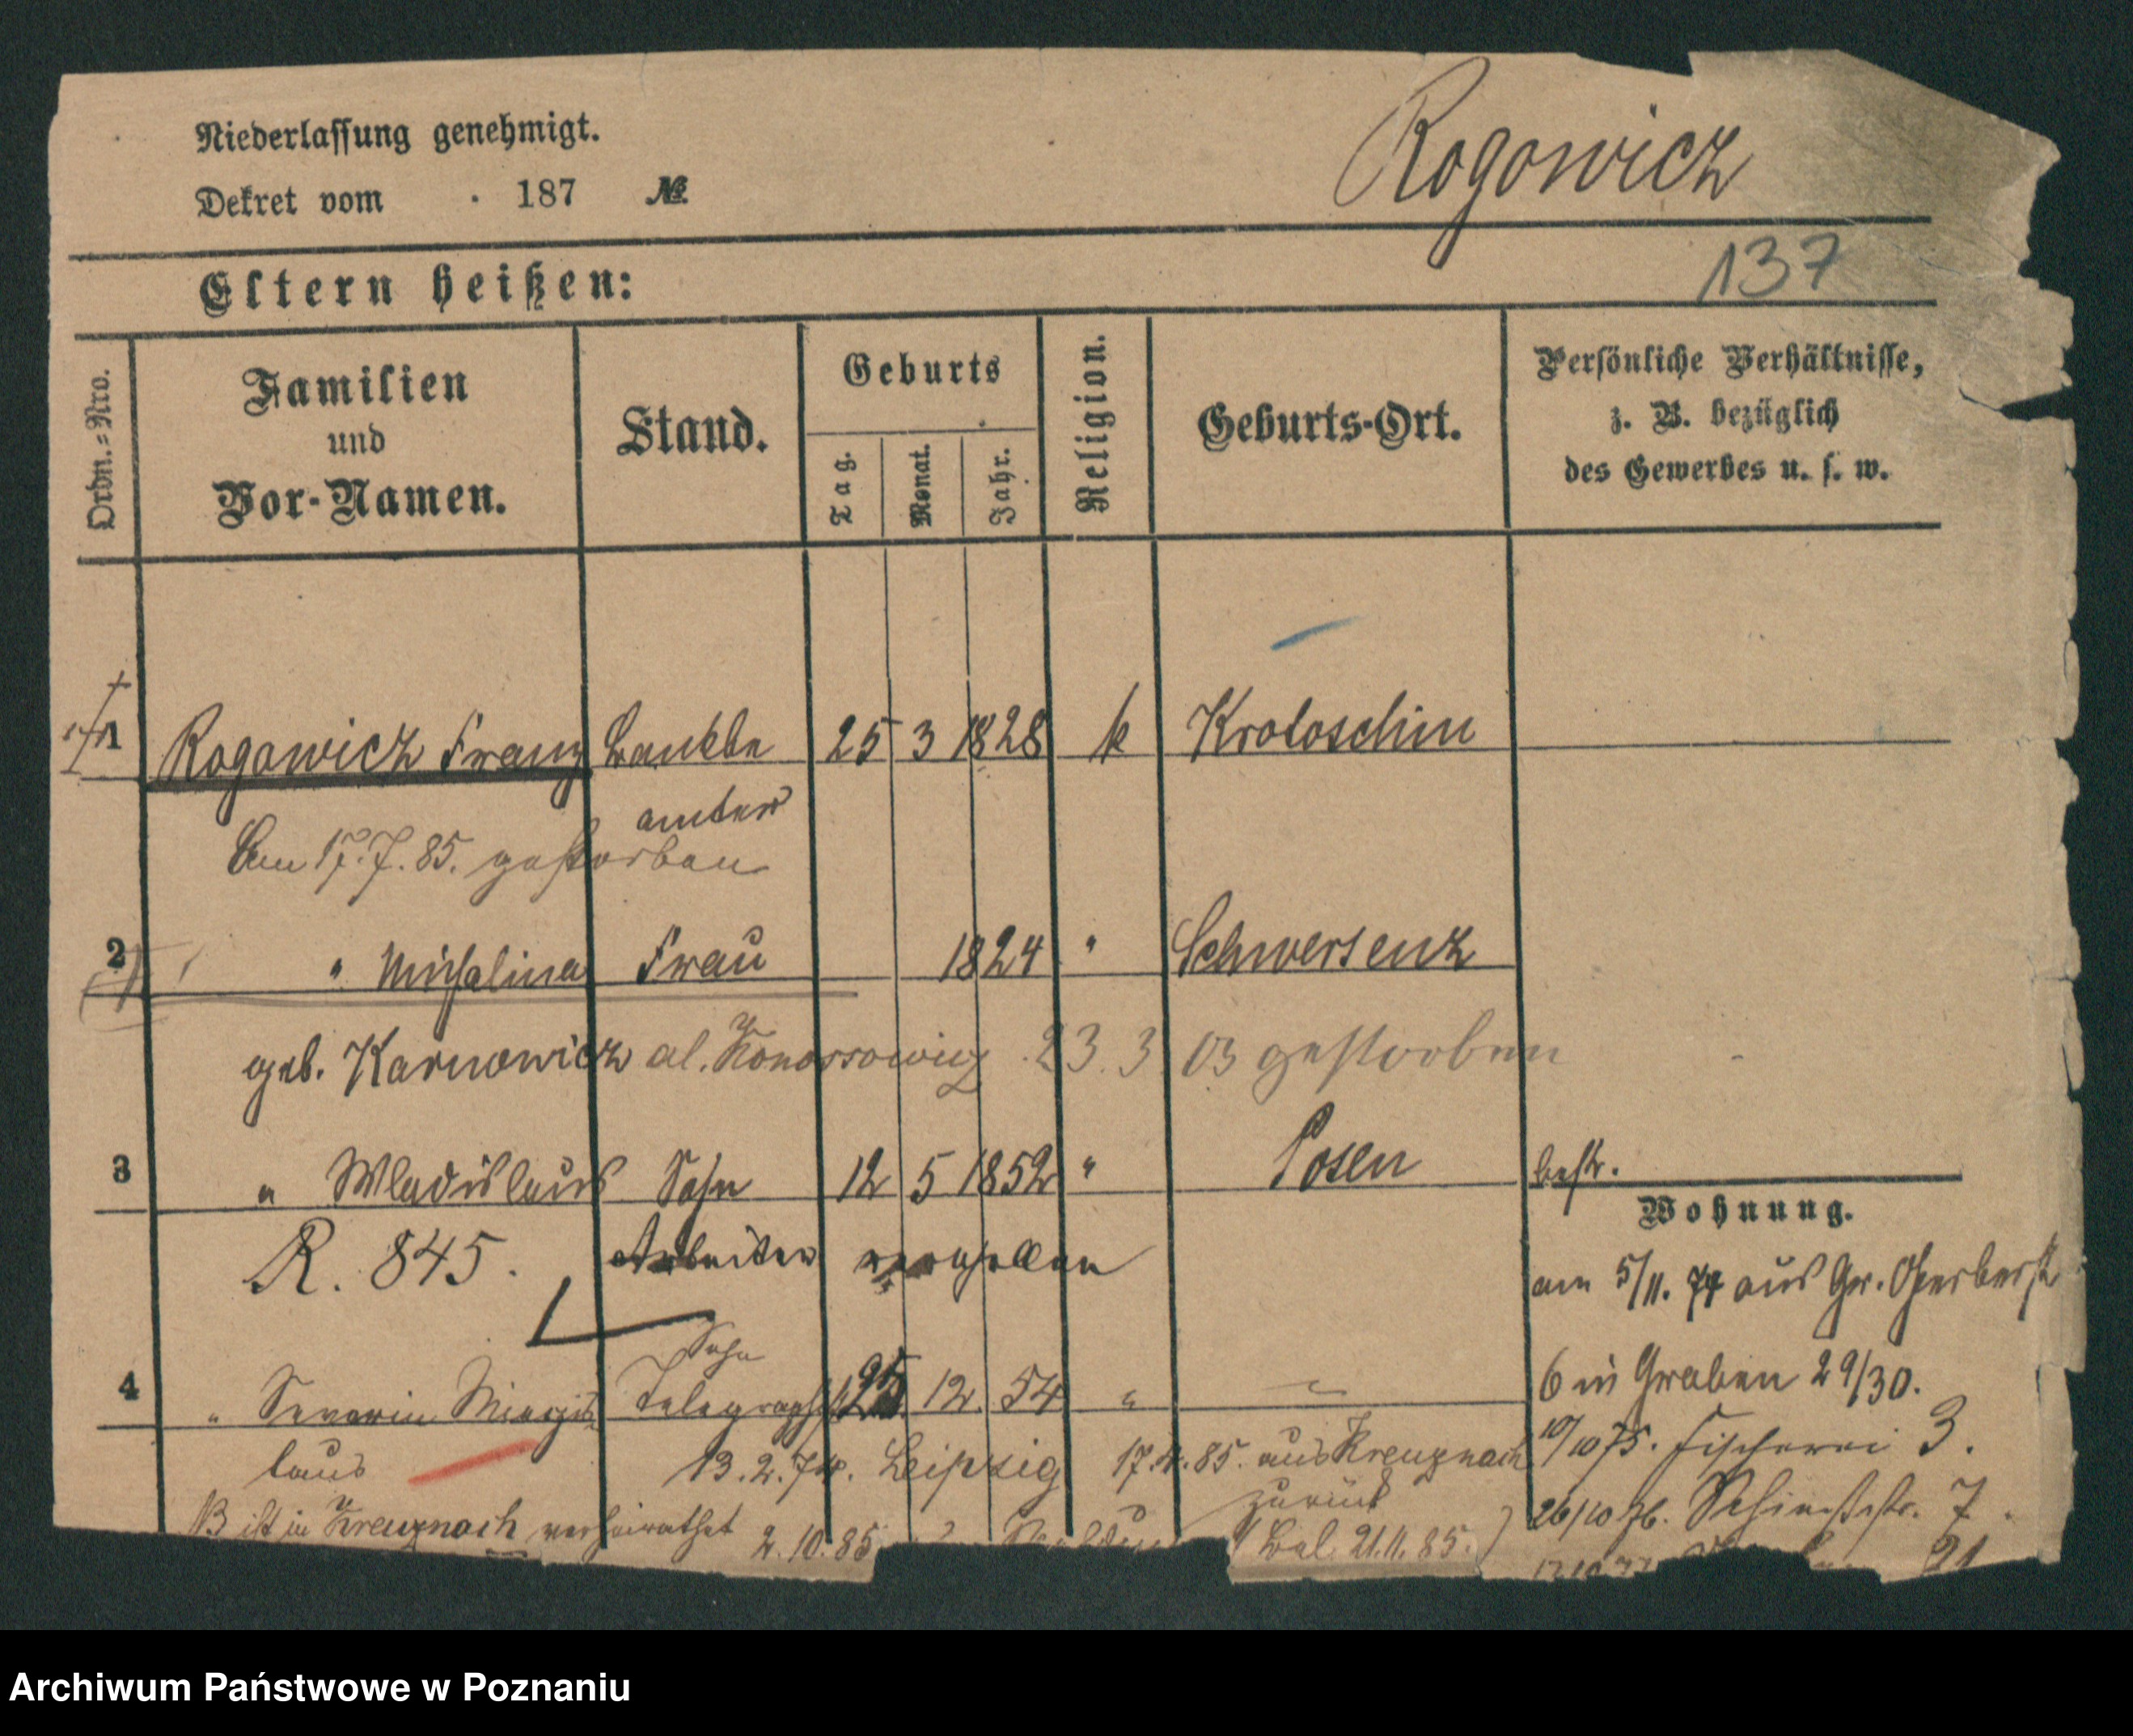 Niederlassung genehmigt.
Rogowicz
Dekret vom . 187 №
Eltern heißen:
137
Ordn.=Nro.
Familien und Vor-Namen.
Stand.
Geburts
Tag. Monat. Jahr.
Religion.
Geburts-Ort.
Persönliche Verhältnisse, z. B. bezüglich des Gewerbes u. s. w.
1 Rogowicz Franz Bankbe 25 3 1828 k Krotoschin
amter
Am 17.7.85. gestorben
2 " Michalina Frau 1824 " Schwersenz
geb. Karnowicz al. Konossowicz 23. 3 03 gestorben
3 " Wladislaus Sohn 12 5 1852 " Posen bestr.
R. 845. Arbeiter verschollen
Wohnung.
am 5/11. 74 aus Gr. Gerberstr
Sohn
4 " Severin Mieczis Telegraphist 25 12. 54 " "
6 in Graben 29/30.
laus 13.2.74. Leipzig 17.4.85. aus Kreuznach
zurück
10/10 75. Fischerei 3.
NB ist in Kreuznach verheirathet 2.10.85 21.11.85.
26/10 76. Schiesstr. 7.
21